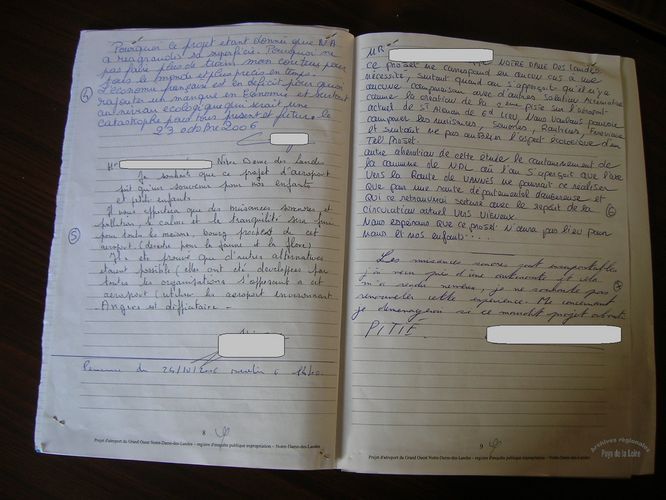 Pourquoi ce projet etant donnée que N.A
a reagrandis sa superficie. Pourquoi ne
pas faire plus de train moin couteux pour
tous le monde et plus precis en temps.
L'économie française est en déficit pourquoi
rajouter un manque en Economie et surtout
au niveau ecologique qui serait une
catastrophe pour tous present et future.
④
23 octobre 2006
Notre Dame des Landes
Je souhait que ce projet d'aeroport
soit qu'un souvenir pour nos enfants
et petit enfants
pollution, le calme et la tranquilité sera finie
pour toute le moins, bourg proche de cet
aeroport (desastre pour la faune et la flore)
⑤
Il a été prouvé que d'autres alternatives
etaient possible (elles ont été developpees par
toutes les organisations s'opposant a cet
aeroport (utiliser les aeroport environnant
Angers est deficitaire -
Permanence du 24/10/2006
8
Projet d'aéroport du Grand Ouest Notre-Dame-des-Landes – registre d'enquête publique expropriation – Notre-Dame-des-Landes
MR
NOTRE DAME DES LANDES
Ce projet ne correspond en aucun cas a une
nécessité, surtout quand on s'aperçoit qu'il n'y a
aucune comparaison avec d'autres solution Alternative
comme la création de la 2ème piste sur l'aéroport
actuel de St Aignan de Gd Lieu. Nous voulons pouvoir
comparer les nuisances, sonores, Routiere, Financiere
et surtout ne pas oublier l'aspect écologique d'un
tel Projet.
autre aberration de cette étude le contournement de
la commune de NDL ou l'on s'aperçoit que l'axe
vers la Route de VANNES ne pourrait se réaliser
que par une route départemental dangereuse et
circulation actuel vers Vigneux.
⑥
Nous esperons que ce projet N'aura pas lieu pour
nous et nos enfants.....
Les nuisances sonores sont insupportables
j'ai vecu près d'une autoroute et cela
m'a rendu nerveux, je ne souhaite pas
renouveler cette experience. Me concernant
je demenagerai si ce maudit projet aboutit.
⑦
PITIÉ
9
Projet d'aéroport du Grand Ouest Notre-Dame-des-Landes – registre d'enquête publique expropriation – Notre-Dame-des-Landes
Archives régionales
Pays de la Loire